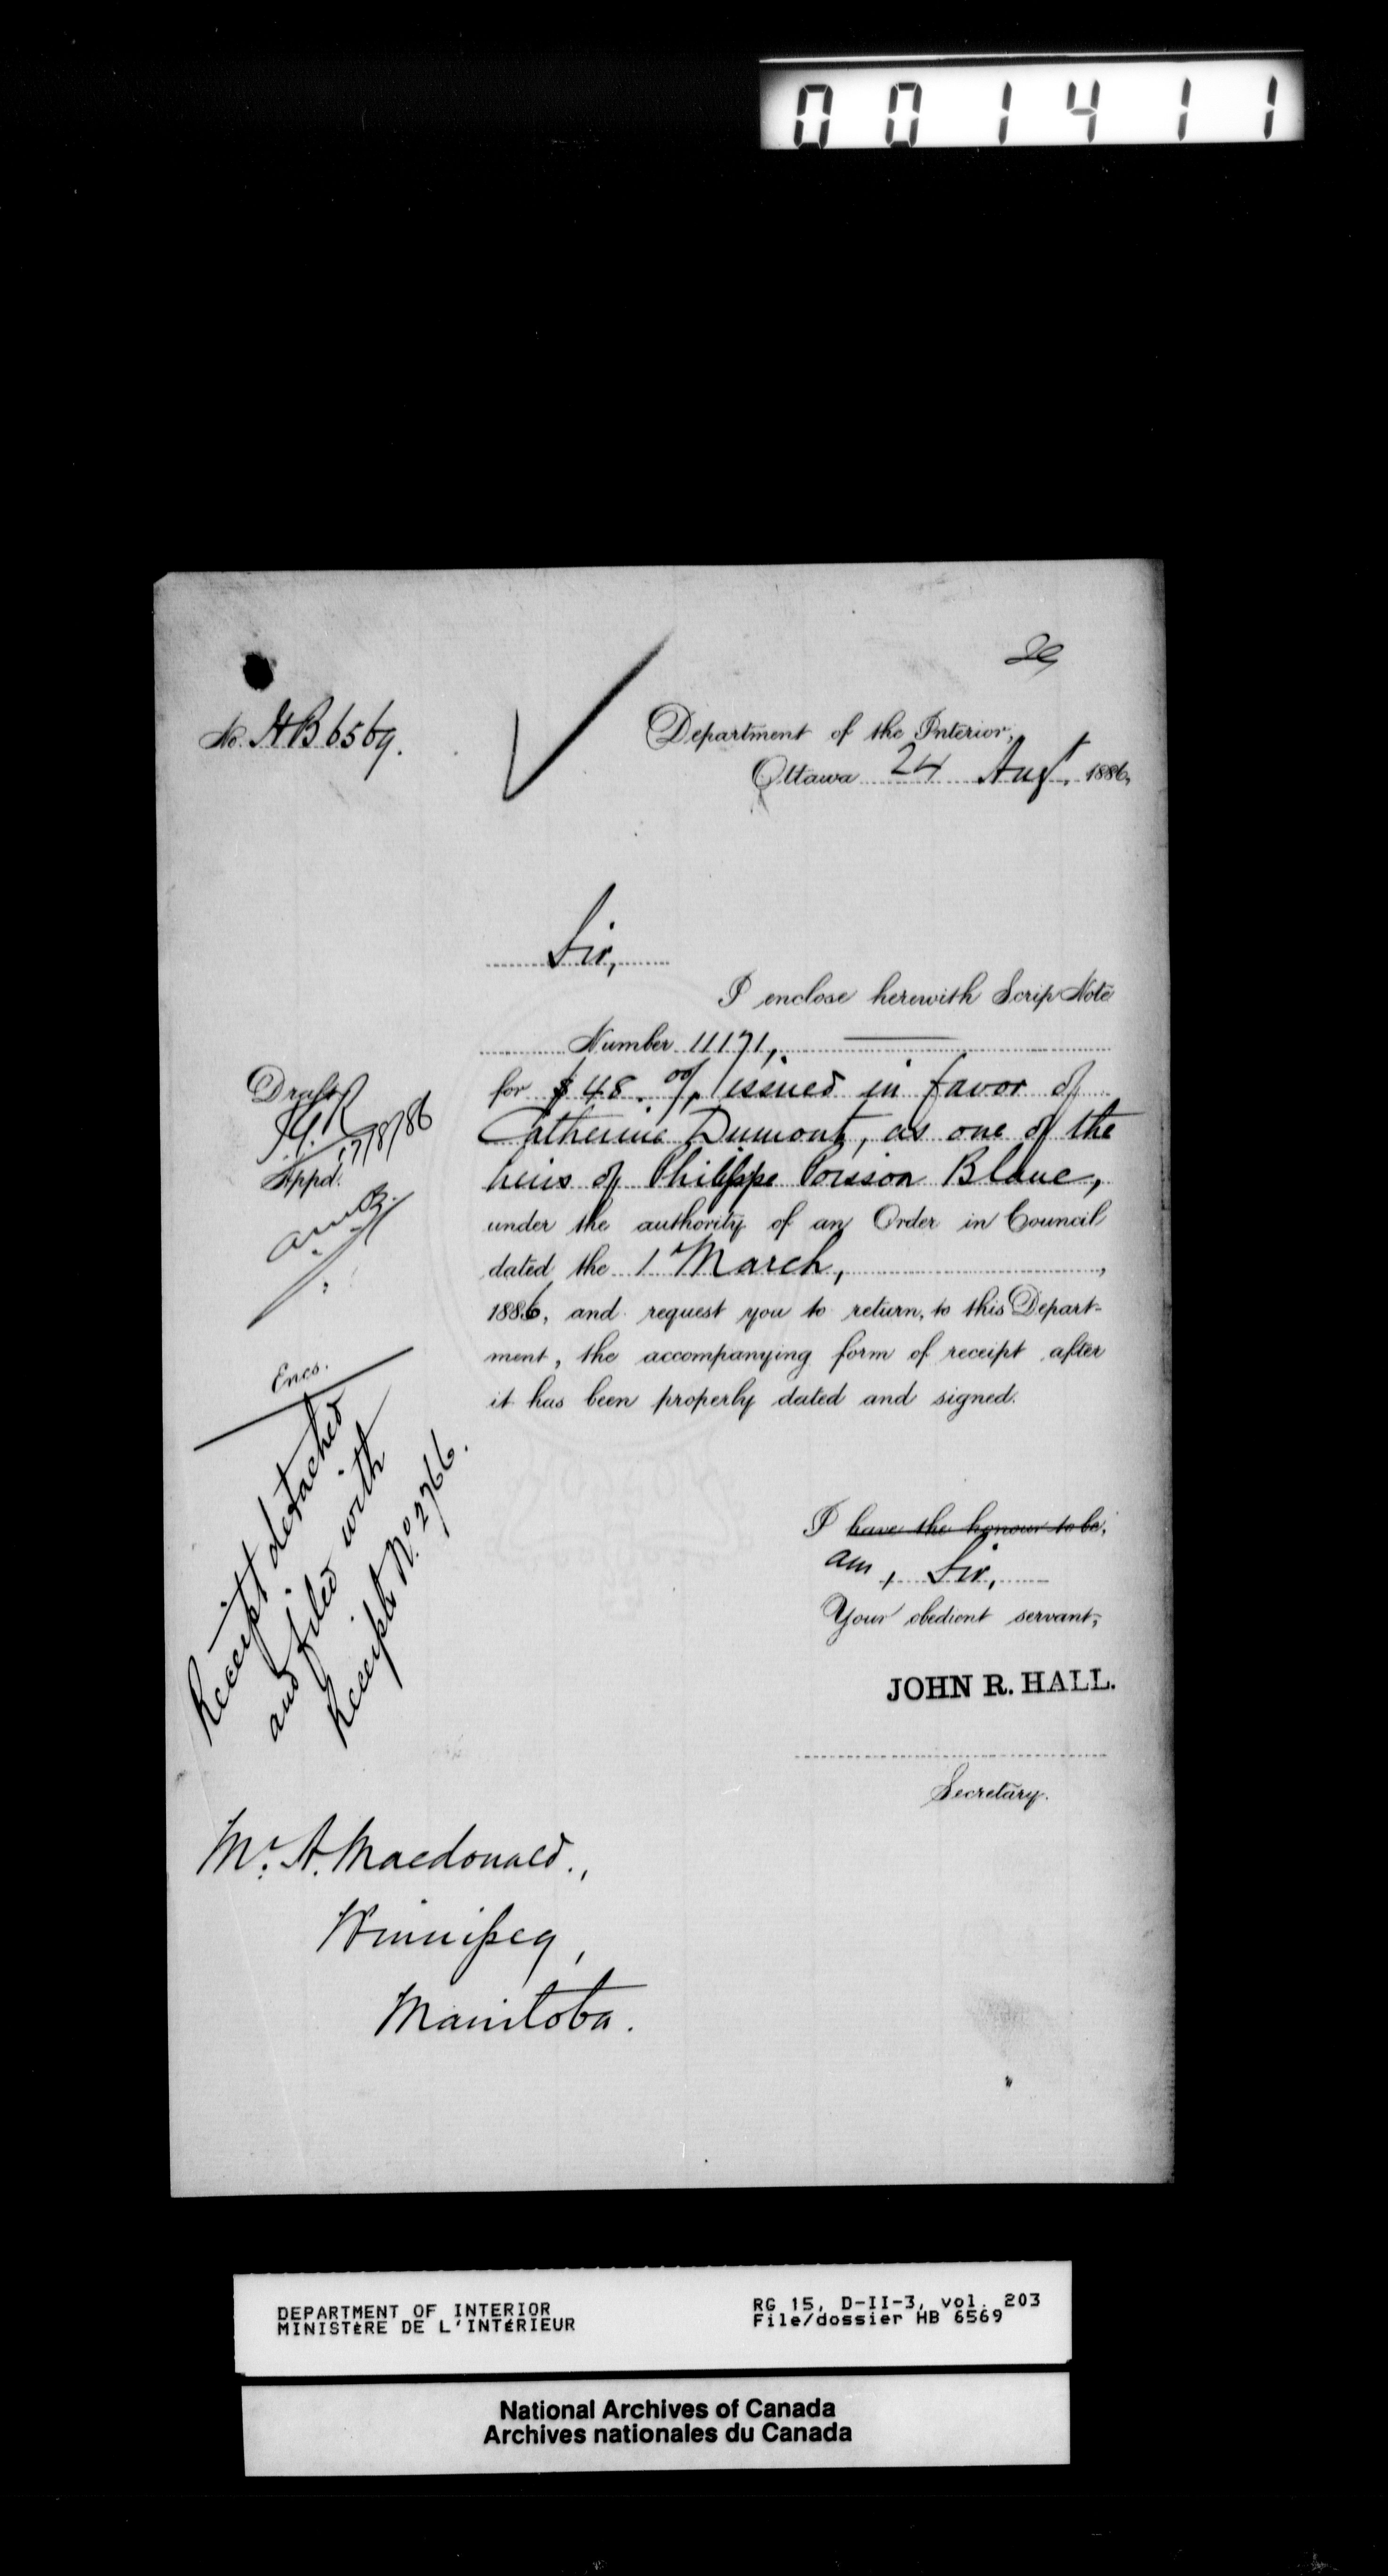 001411
29
No. HB 6569.
Department of the Interior,
Ottawa 24 Augt. 1886,
Sir,
I enclose herewith Scrip Note
Number 11171,
for $48.00/, issued in favor of
Catherine Dumont, as one of the
heirs of Philippe Poisson Blanc,
under the authority of an Order in Council
dated the 1 March,
1886, and request you to return, to this Depart-
ment, the accompanying form of receipt after
it has been properly dated and signed.
Draft
17/8/86
Appd.
Encs.
Receipt detached
and filed with
Receipt No. 2766.
I have the honour to be,
am, Sir,
Your obedient servant,
JOHN R. HALL.
Secretary.
Mr. A. Macdonald.,
Winnipeg,
Manitoba.
DEPARTMENT OF INTERIOR
MINISTÈRE DE L'INTÉRIEUR
RG 15, D-II-3, vol. 203
File/dossier HB 6569
National Archives of Canada
Archives nationales du Canada